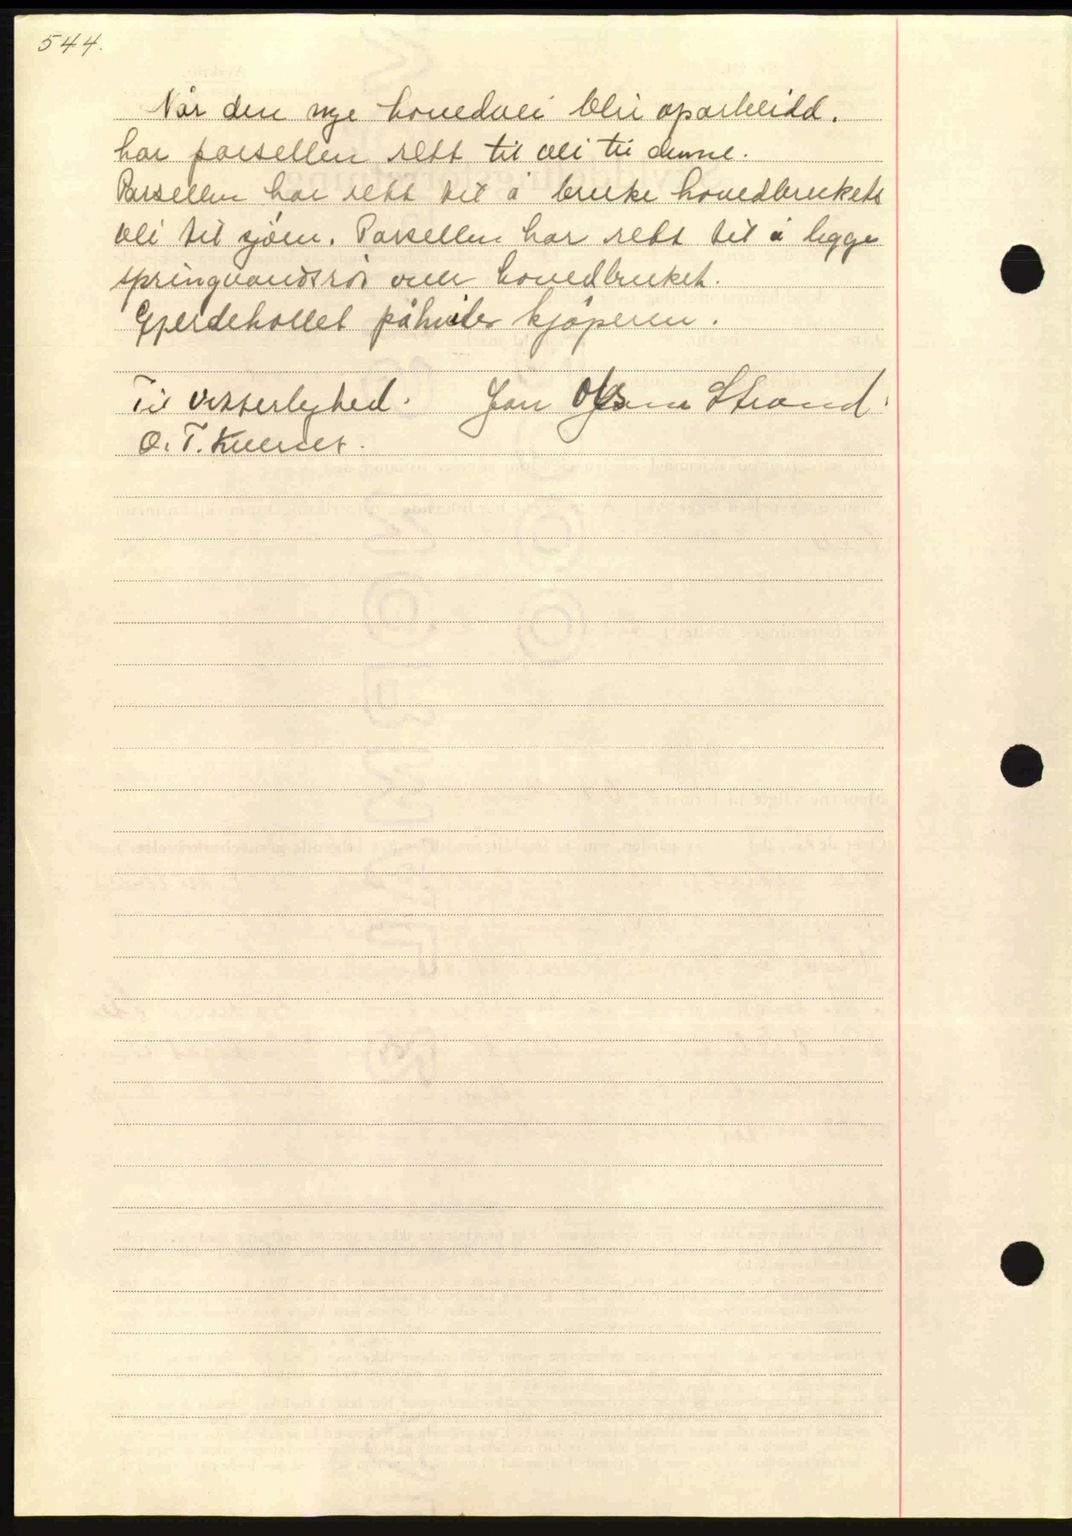 544.
Når den nye hovedvei blir oparbeidd.
har parsellen rett til vei til denne.
Parsellen har rett til å bruke hovedbrukets
vei til sjöen. Parsellen har rett til å legge
springvandsrör over hovedbruket.
Gjerdeholdet påhviler kjöperen.
Til vitterlighed. Jon Strand.
O. T.